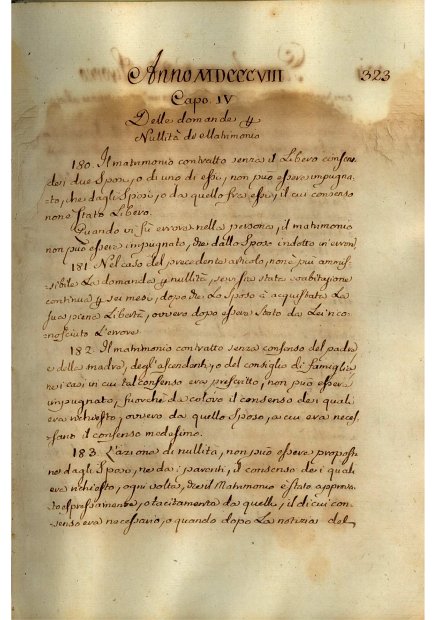 Anno MDCCCVIII 323
Capo IV
Delle domande p
Nullità de Matrimonio
180. Il matrimonio contratto senza il Libero consenso
dei due Sposi, o di uno di essi, non può essere impugna-
to, che dagli Sposi, o da quello fra essi, il cui consenso
non è stato Libero.
Quando vi fu errore nella persona, il matrimonio
non può essere impugnato, che dallo Sposo indotto in errore
181 Nel caso del precedente articolo, non è più amis-
sibile La domanda p nullità, se vi fu stata coabitazione
continua p sei mesi, dopo che Lo Sposo à acquistata La
sua piena Libertà, ovvero dopo essere stato da Lei rico-
nosciuto L'errore
182. Il matrimonio contratto senza consenso del padre
e della madre, degl'ascendenti, o del consiglio di famiglia
nei casi in cui tal consenso era prescritto, non può essere
impugnato, fuorchè da coloro il consenso dei quali
era richiesto, ovvero da quello Sposo, a cui era neces-
sario il consenso medesimo.
183. L'azione di nullità, non può essere propos-
ta dagli Sposi, ne da i parenti, il consenso dei quali
era richiesto, ogni volta, che il Matrimonio è stato approva-
to espressamente, o tacitamente da quelli, il di cui con-
senso era necessario, o quando dopo La notizia del